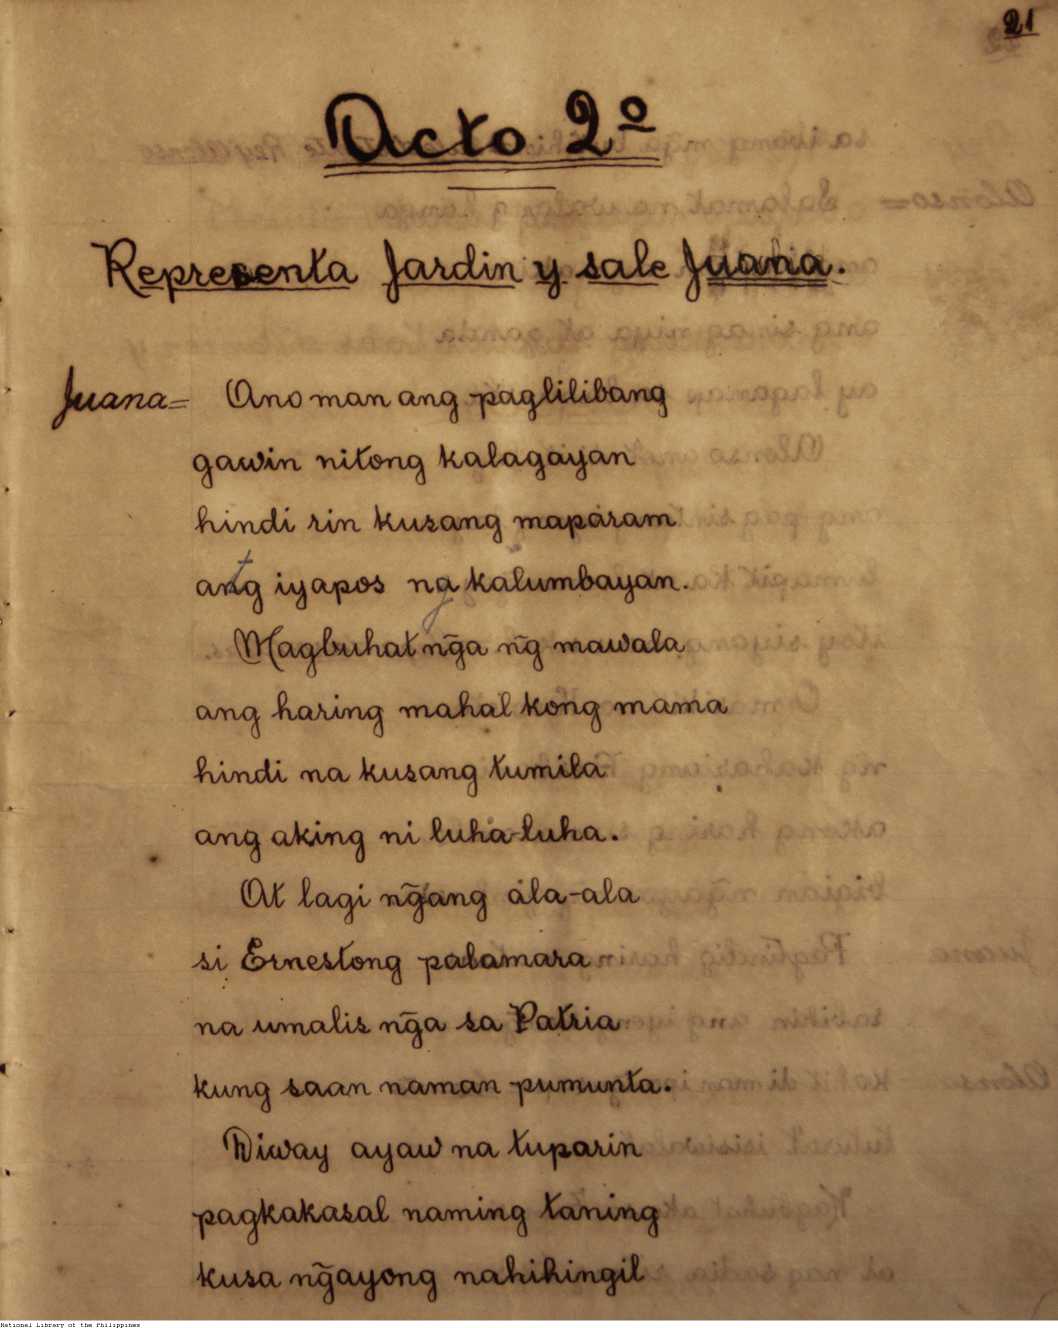 21
Acto 2º
Representa Jardin y sale Juana.
Juana= Ano man ang paglilibang
gawin nitong kalagayan
hindi rin kusang maparam
ang iyapos ng kalumbayan.
Magbuhat ng̃a ng̃ mawala
ang haring mahal kong mama
hindi na kusang tumila
ang aking ni luha-luha.
At lagi ng̃ang ala-ala
si Ernestong palamara
na umalis ng̃a sa Patria
kung saan naman pumunta.
Diway ayaw na tuparin
pagkakasal naming taning
kusa ng̃ayong nahihingil
National Library of the Philippines